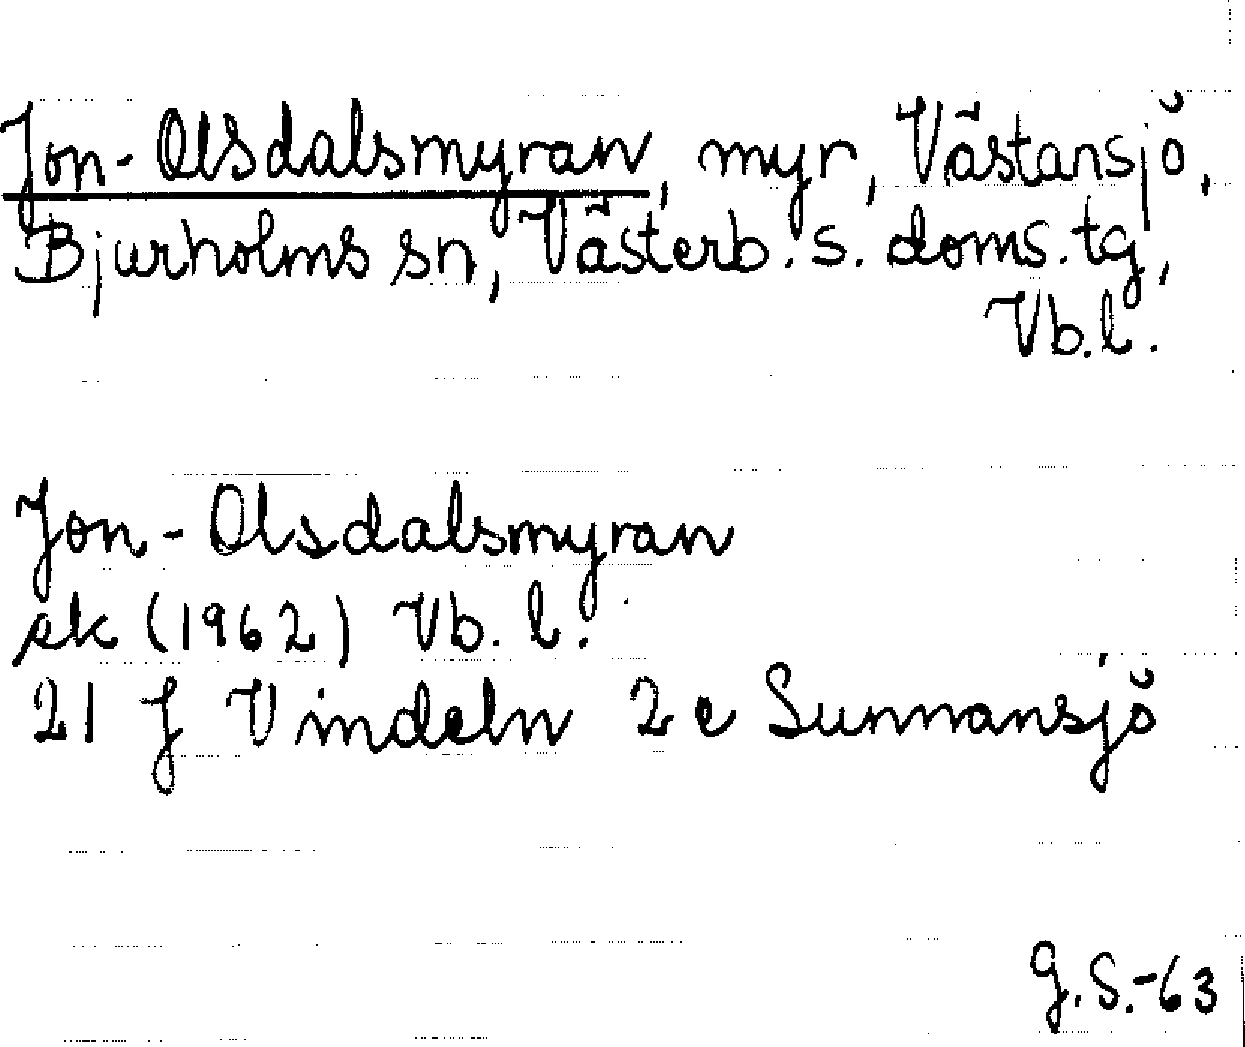 Jon-Olsdalsmyran, myr, Västansjö,
Bjurholms sn, Västerb. s. doms. tg,
Vb.l.
Jon-Olsdalsmyran
ek (1962) Vb. l.
21 J Vindeln 2 e Sunnansjö
G.S.-63